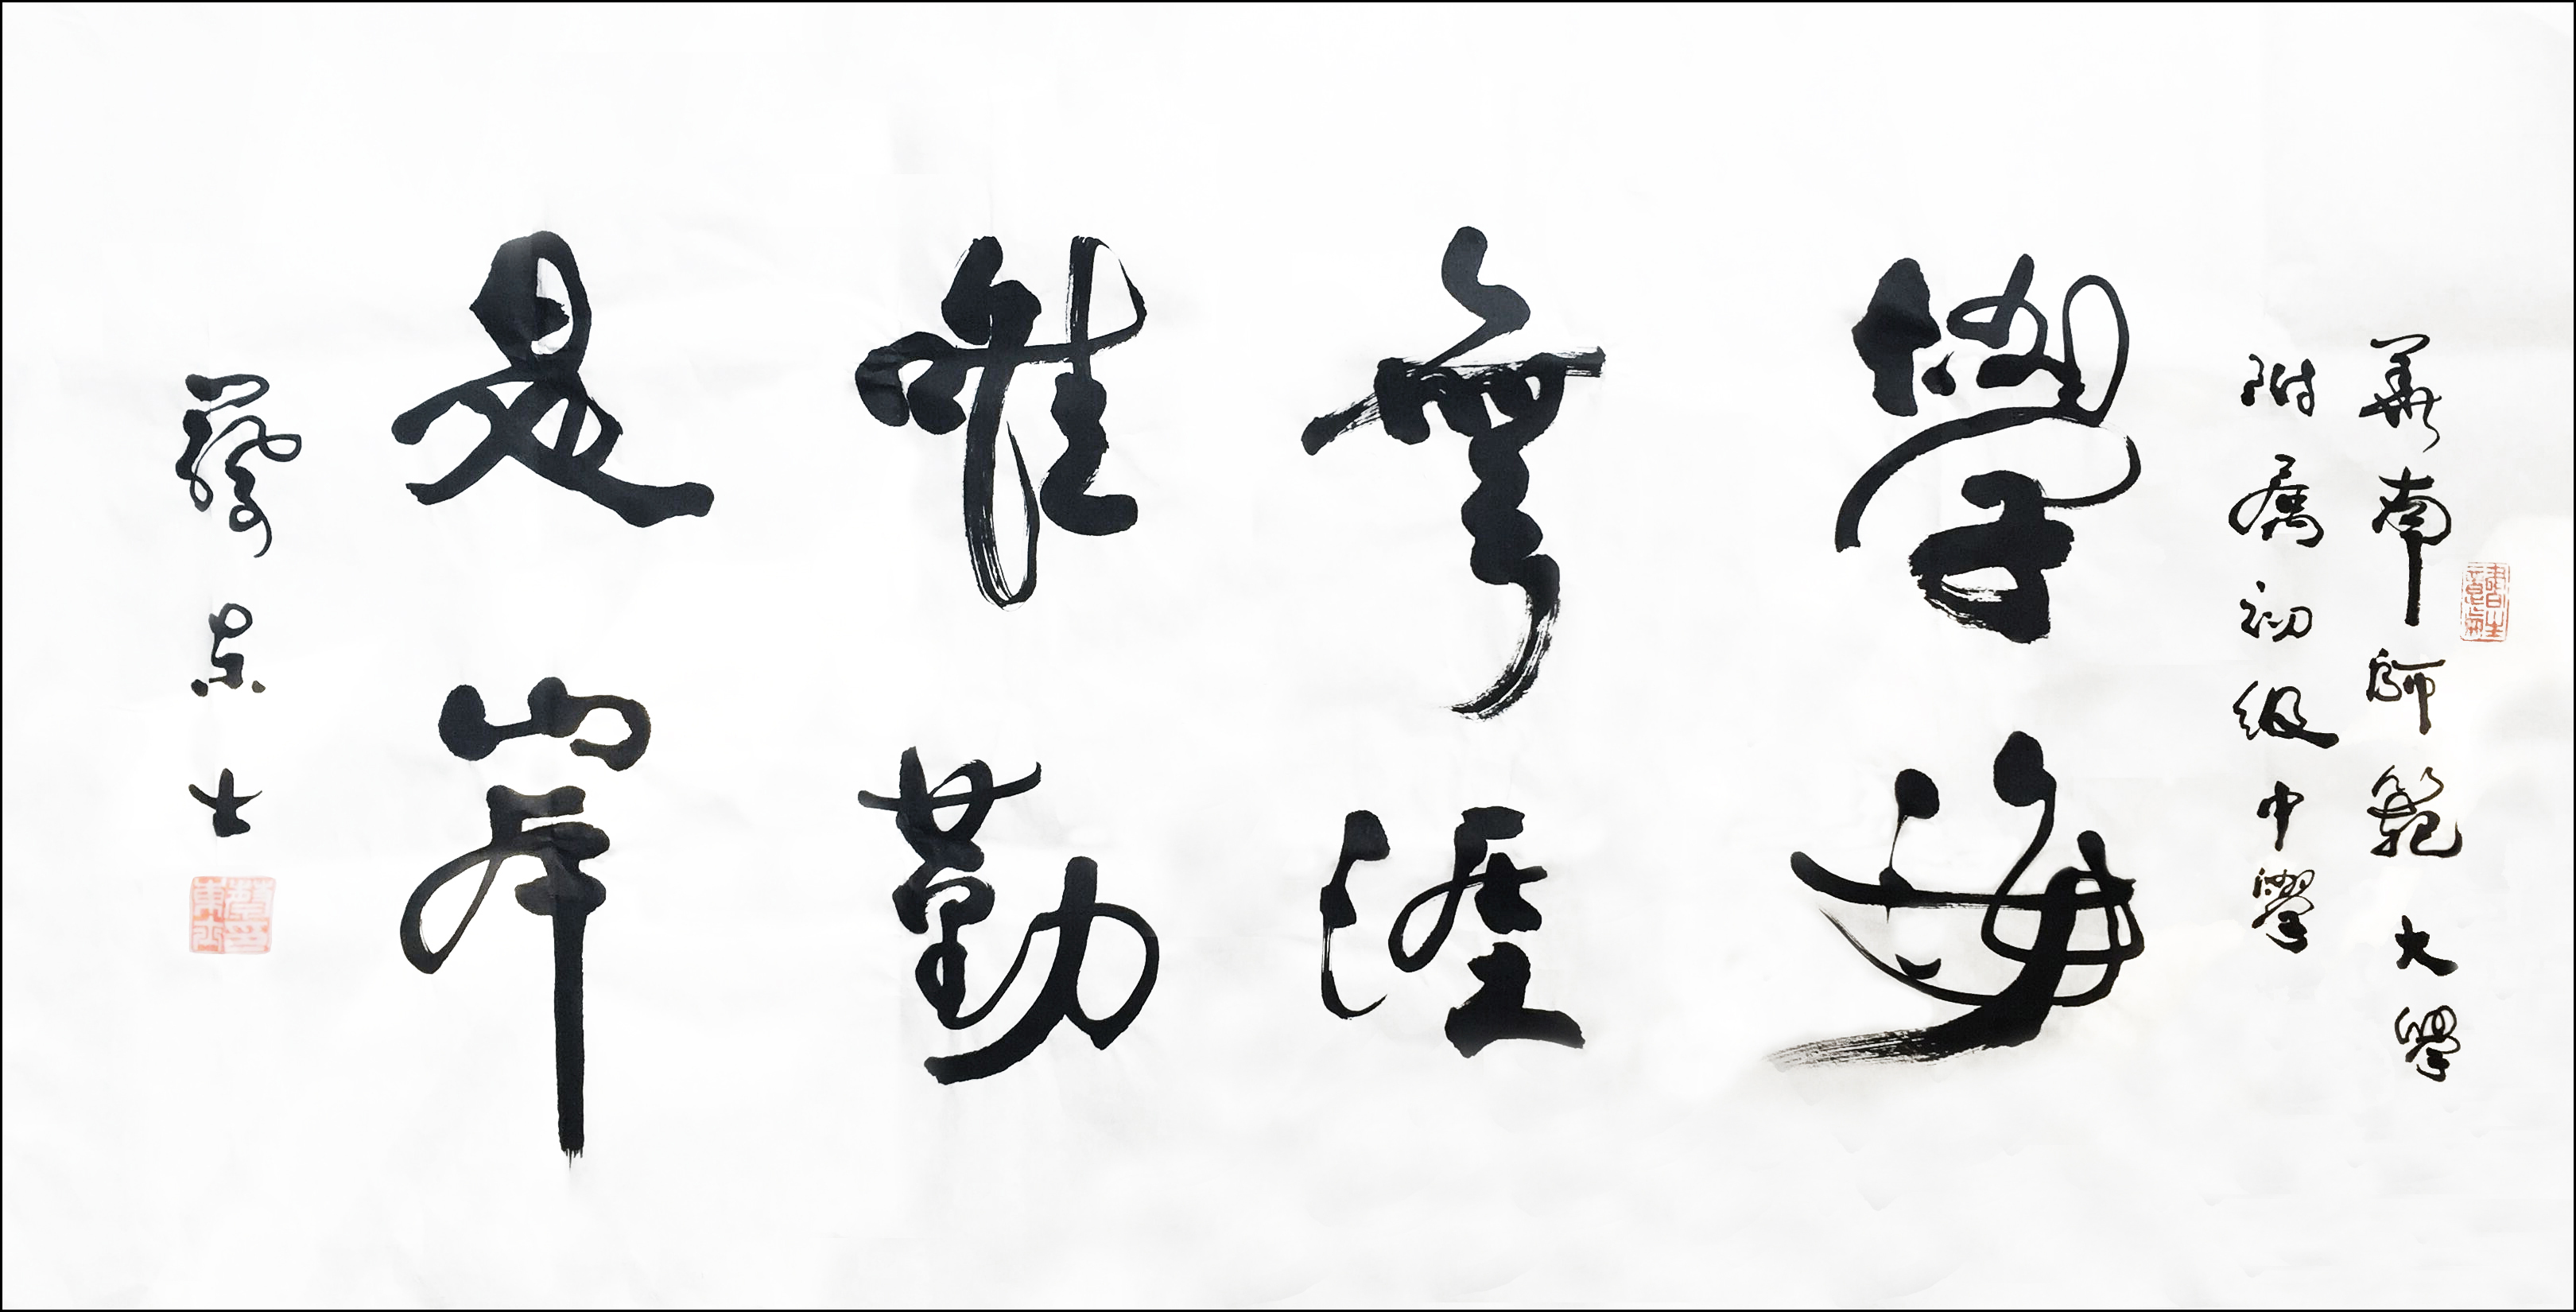 華南師範大學
附屬初級中學
學海
無涯
唯勤
是岸
蔡東士